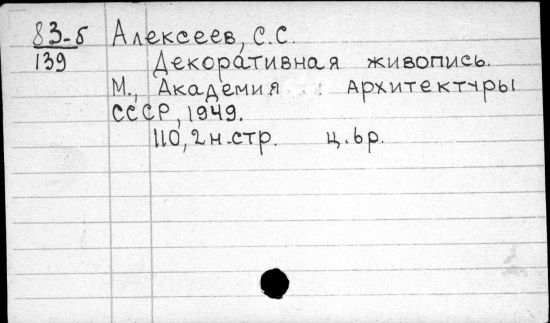 83-5 Алексеев, С.С.
139 Декоративная живопись.
М., Академия Архитектуры
СССР, 1949.
110, 2 н.стр. ц. 6р.